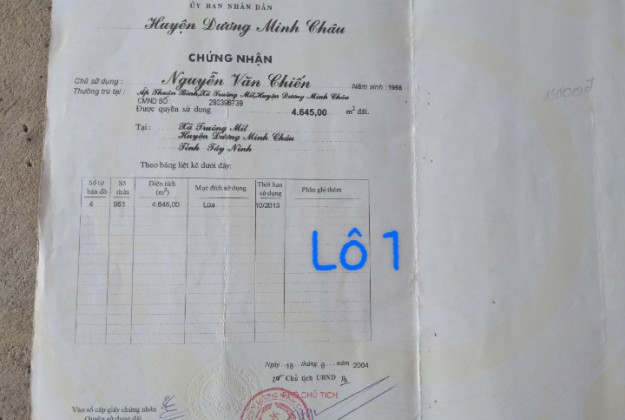 ỦY BAN NHÂN DÂN
Huyện Dương Minh Châu
CHỨNG NHẬN
Chủ sử dụng : Nguyễn Văn Chiến Năm sinh : 1968
Thường trú tại : Ấp Thuận Bình, Xã Truông Mít, Huyện Dương Minh Châu
CMND SỐ: 290396739
Được quyền sử dụng 4.645,00 m² đất.
Tại : Xã Truông Mít
Huyện Dương Minh Châu
Tỉnh Tây Ninh
Theo bảng liệt kê dưới đây:
Số tờ bản đồ Số thửa Diện tích (m²) Mục đích sử dụng Thời hạn sử dụng Phần ghi thêm
4 951 4.645,00 Lúa 10/2013
Lô 1
Ngày 16 tháng 6 năm 2004
Chủ tịch UBND
PHÓ CHỦ TỊCH
Vào sổ cấp giấy chứng nhận
Quyền sử dụng đất